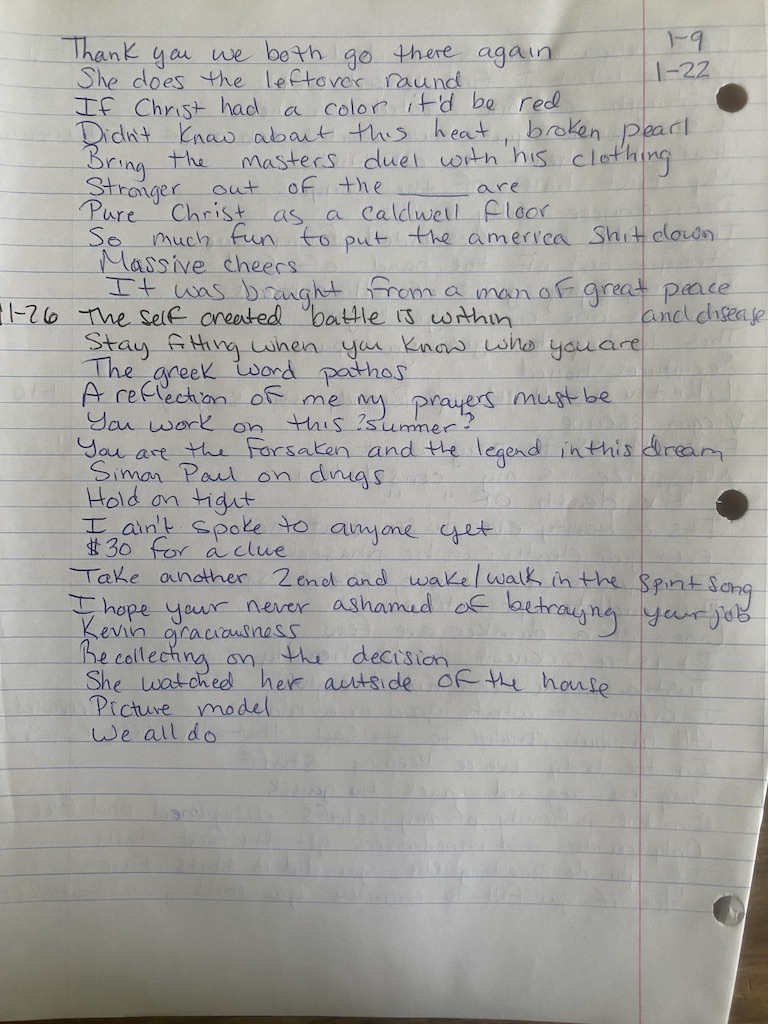 Thank you we both go there again 1-9
She does the leftover round 1-22
If Christ had a color it'd be red
Didn't know about this heat, broken pearl
Bring the masters duel with his clothing
Stronger out of the ____ are
Pure Christ as a Caldwell floor
So much fun to put the america shit down
Massive cheers
It was brought from a man of great peace
and disease
11-26 The self created battle is within
Stay fitting when you know who you are
The greek word pathos
A reflection of me my prayers must be
You work on this ?summer?
You are the forsaken and the legend in this dream
Simon Paul on drugs
Hold on tight
I ain't spoke to anyone yet
$30 for a clue
Take another 2end and wake/walk in the spirit song
I hope your never ashamed of betraying your job
Kevin graciousness
Recollecting on the decision
She watched her outside of the house
Picture model
We all do